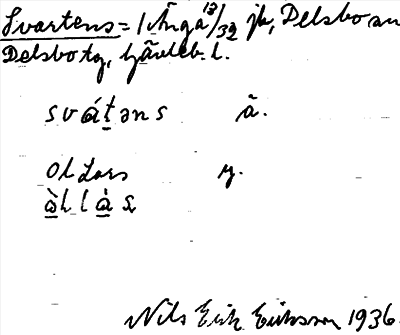 Svartens = 1 Ånga 13/32 jb, Delsbo sn
Delsbo tg, Gävleb. l.
svátəns ä.
Ol Lars y.
àl l às
Nils Erik Eriksson 1936